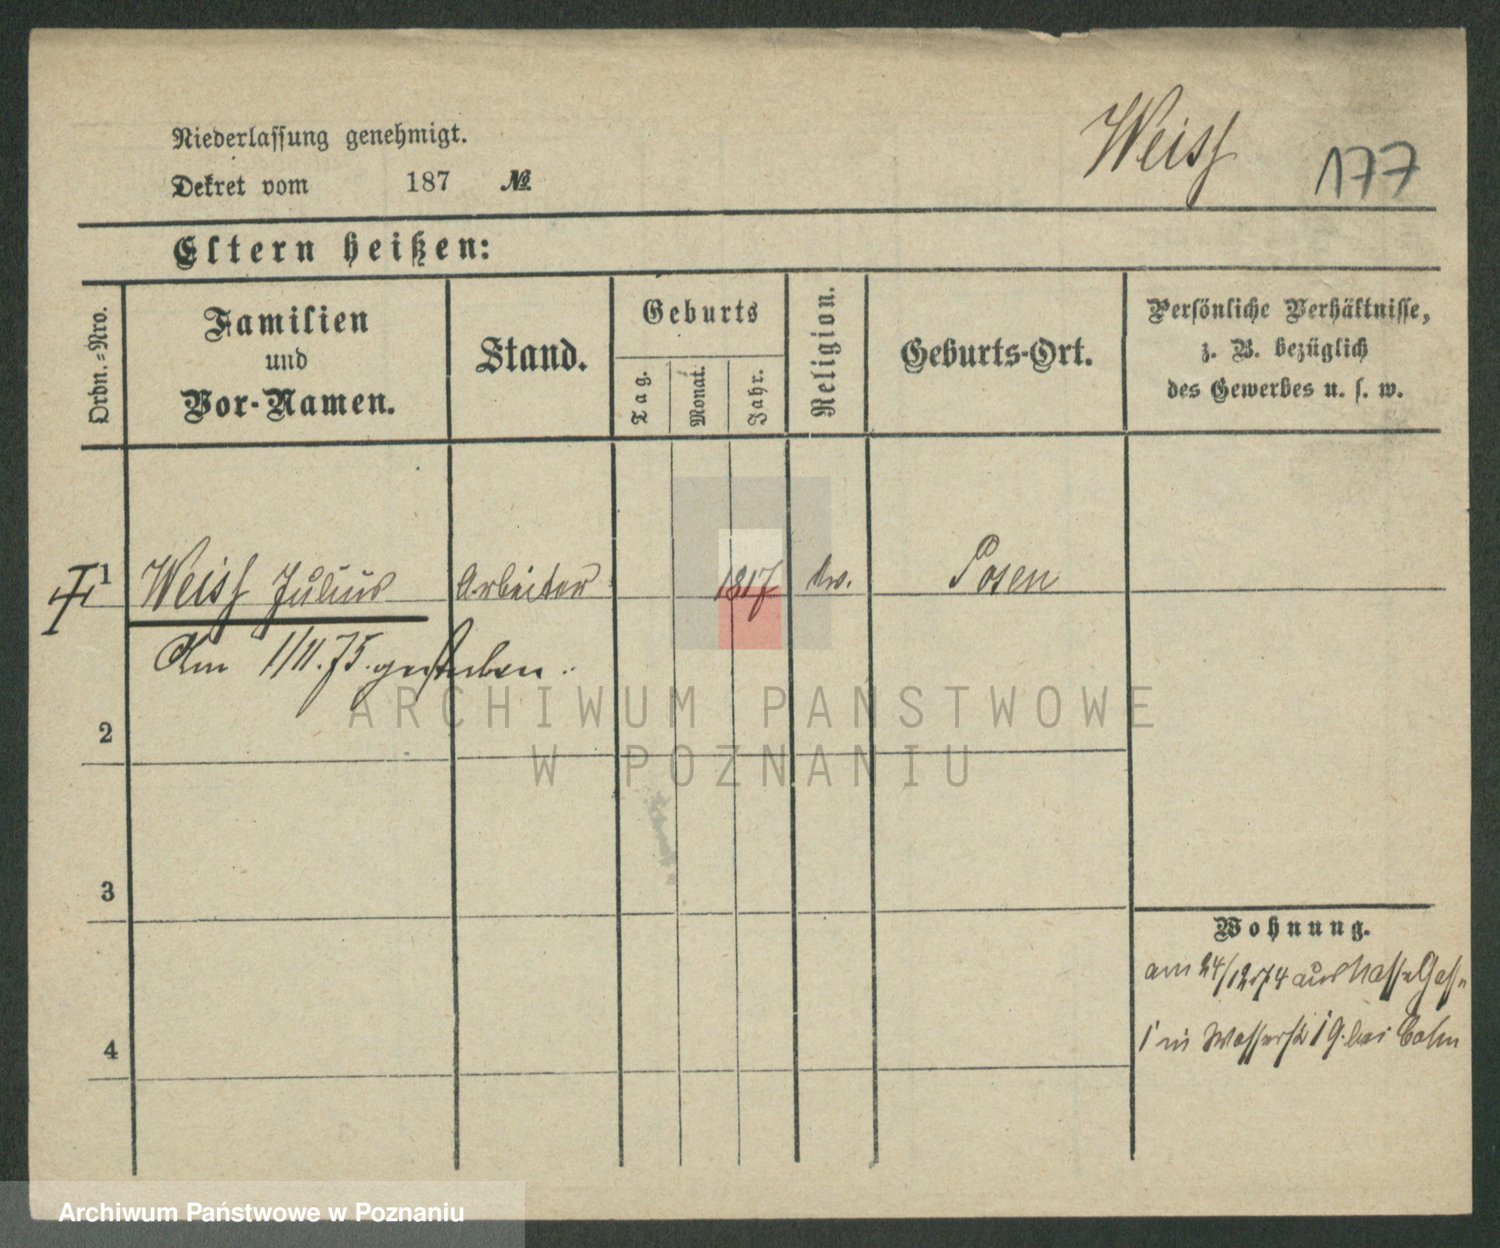 Weiss
177
Niederlassung genehmigt.
Dekret vom 187 №
Eltern heißen:
Ordn.-Nro.
Familien
und
Vor-Namen.
Stand.
Geburts
Tag.
Monat.
Jahr.
Religion.
Geburts-Ort.
Persönliche Verhältnisse,
z. B. bezüglich
des Gewerbes u. s. w.
1 Weiss Julius Arbeiter 1817 Posen
Am 1/11.75. gestorben.
2
3
4
Wohnung.
am 24/12 74 aus Nasse Gasse
1 in Wasserstr 19. bei Cohn
ARCHIWUM PAŃSTWOWE
W POZNANIU
Archiwum Państwowe w Poznaniu